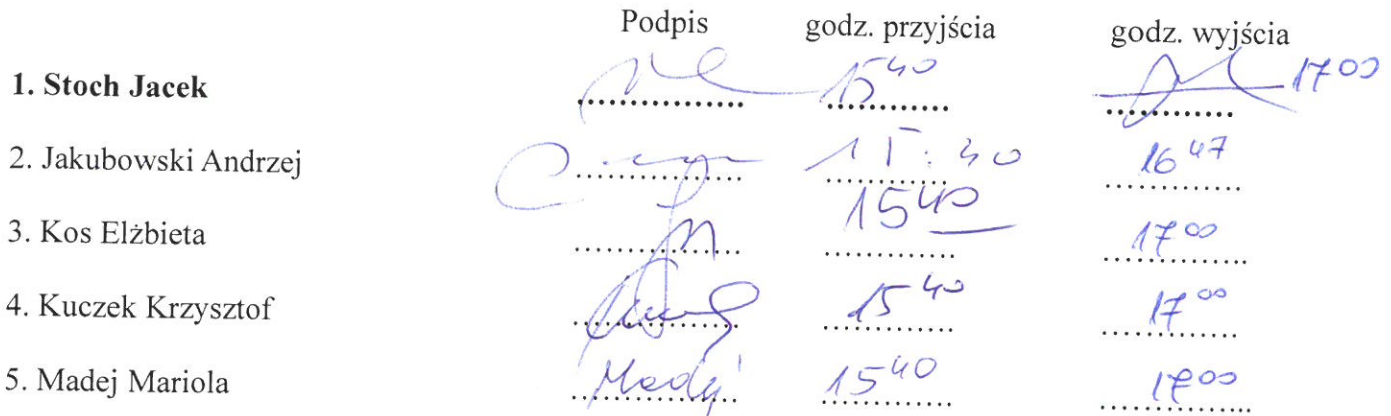 Podpis godz. przyjścia godz. wyjścia
1. Stoch Jacek 15 40 17 00
2. Jakubowski Andrzej 15:40 16 47
3. Kos Elżbieta 15 40 17 00
4. Kuczek Krzysztof 15 40 17 00
5. Madej Mariola Madej 15 40 17 00